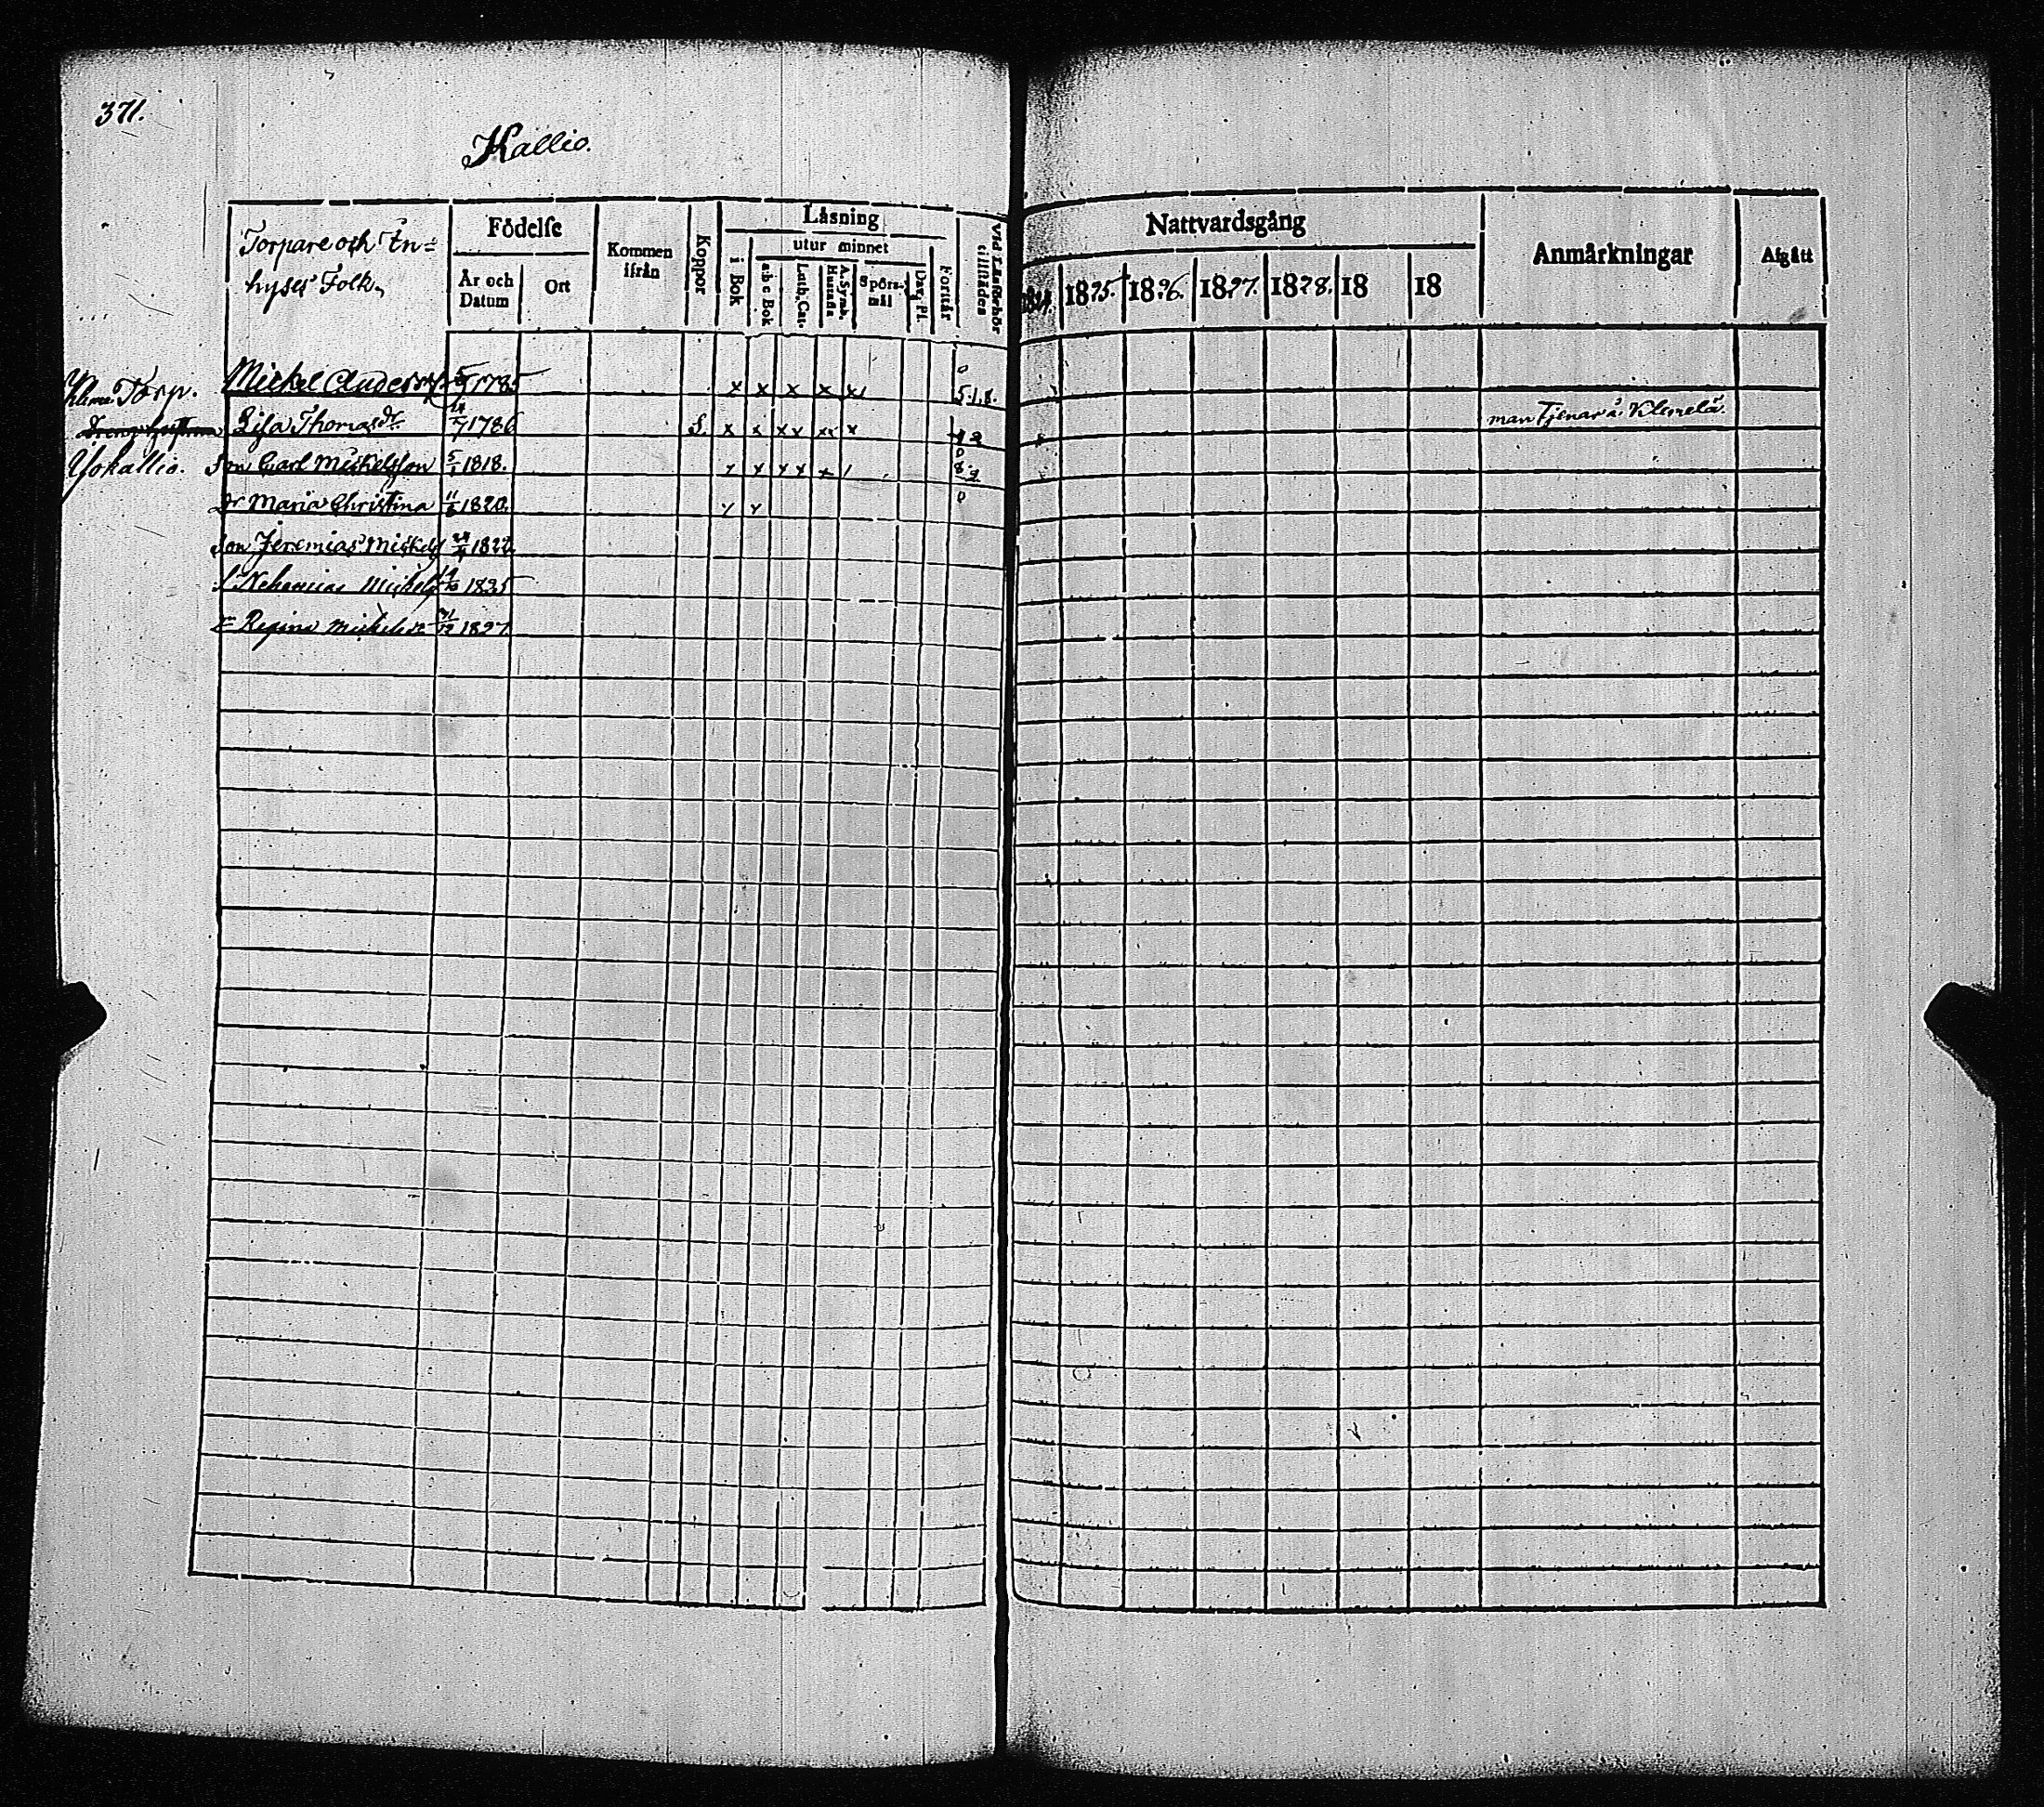 371.
Kallio.
Torpare och In-
hyses Folk.
Födelse
År och Datum
Ort
Kommen ifrån
Koppor
Läsning
i Bok
utur minnet
a b c Bok
Luth. Cat.
A. Symb. Hustafla
Spörs-mål
Dav. Pf.
Förstår
Vid Läsförhör tillstädes
Nattvardsgång
1824.
1825.
1826.
1827.
1828.
18
18
Anmärkningar
Afgått
Torp. Mickel Anders 1785 x x x x x 5.1.8.
Lisa Thomasdr 1786 S. x x xx xx x man tjenar å Klemelä.
Yökallio. Son Carl Mickelsson 5/1 1818.
Dr Maria Christina 1820.
Son Jeremias Mickels 1822
S. Nehemias Mickels 1825
Dr Regina Mickelsdr 1827